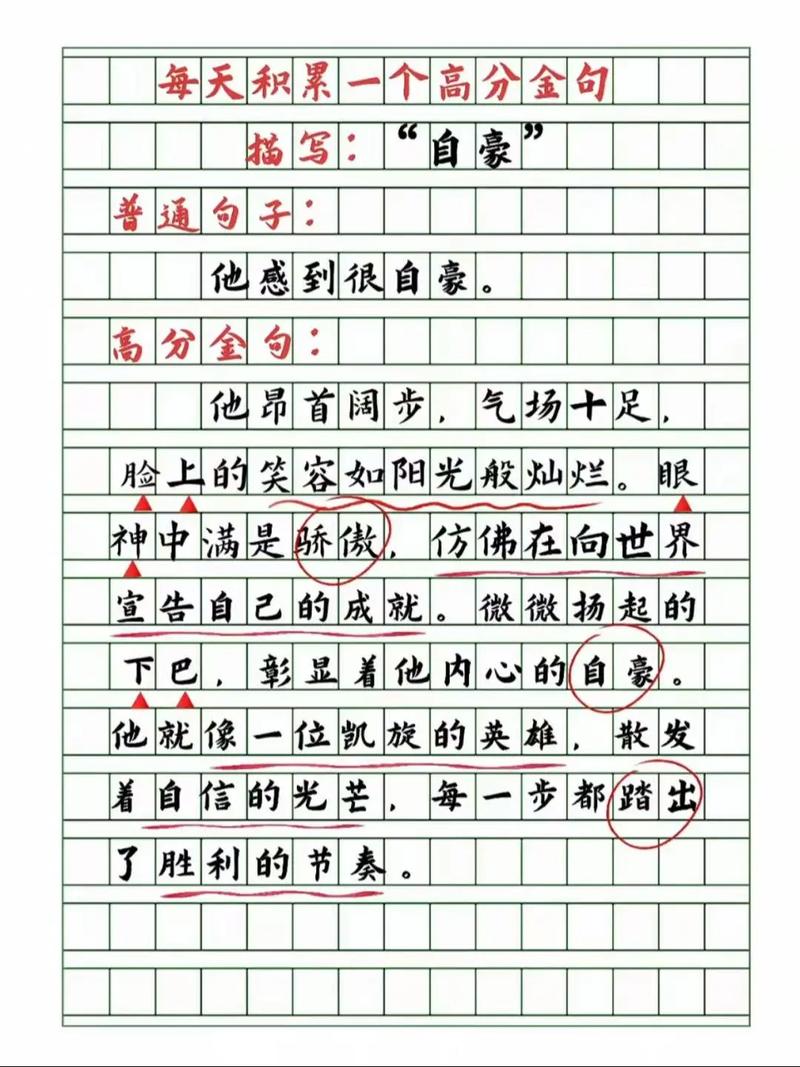 每天积累一个高分金句
描写：“自豪”
普通句子：
他感到很自豪。
高分金句：
他昂首阔步，气场十足，
脸上的笑容如阳光般灿烂。眼
神中满是骄傲，仿佛在向世界
宣告自己的成就。微微扬起的
下巴，彰显着他内心的自豪。
他就像一位凯旋的英雄，散发
着自信的光芒，每一步都踏出
了胜利的节奏。